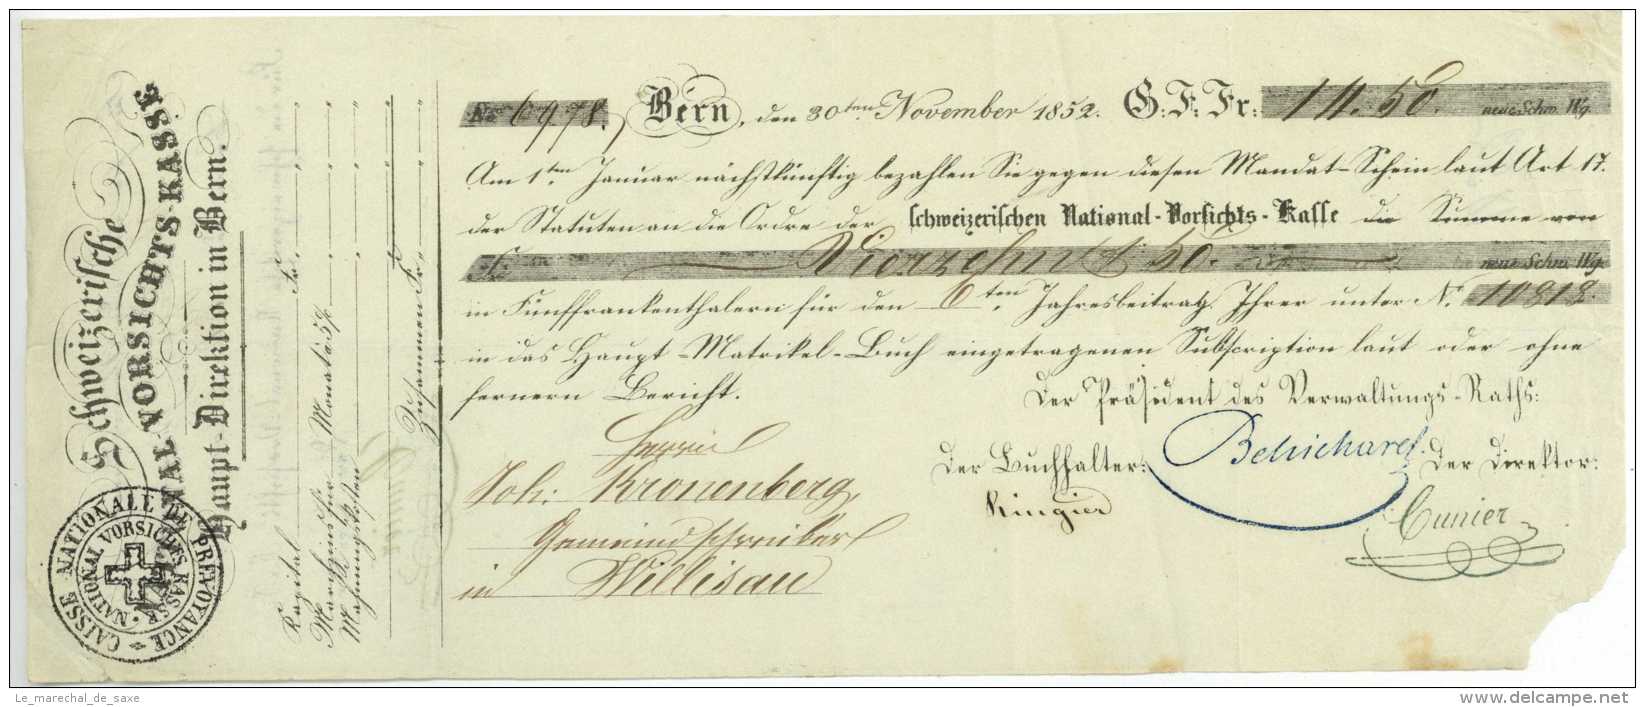 Schweizerische
NATIONAL-VORSICHTS-KASSE
Haupt-Direktion in Bern.
CAISSE NATIONALE DE PRÉVOYANCE
NATIONAL VORSICHTS KASSE
Kapital Fr.
Marchzins für Monat à 5%
Mahnungskosten
Zusammen Fr.
No. 6978. Bern, den 30ten November 1852. G: F: Fr: 14.50. neue Schw. Wg.
Am 1ten Januar nächstkünftig bezahlen Sie gegen diesen Mandat-Schein laut Art 17.
der Statuten an die Ordre der schweizerischen National-Vorsichts-Kasse die Summe von
Fr. Vierzehn & 50. neue Schw. Wg.
in Fünffrankenthalern für den 6ten Jahresbeitrag Ihrer unter No. 10818.
in das Haupt-Matrikel-Buch eingetragenen Subscription laut oder ohne
fernern Bericht.
Der Präsident des Verwaltungs-Raths:
Herrn
Der Buchhalter: Der Direktor:
Joh: Kronenberg,
Ringier
Cunier
Gemeindschreiber
in Willisau
Le_marechal_de_saxe
www.delcampe.net